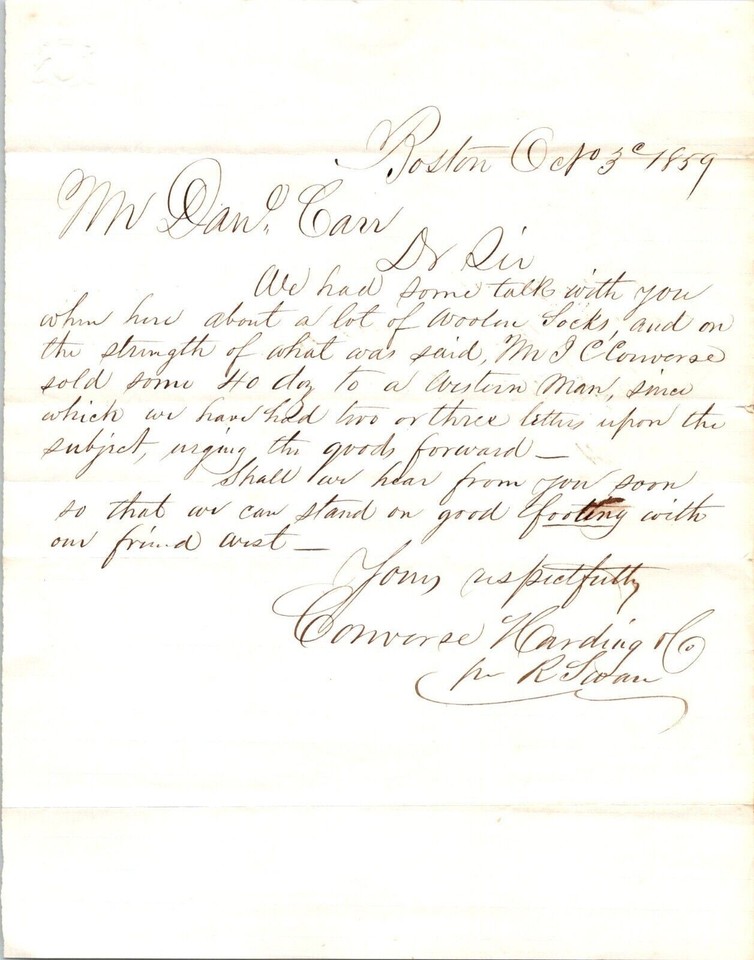 Boston Octo 3d 1859
Mr Danl. Carr
Dr Sir
We had some talk with you
when here about a lot of Woolen Socks, and on
the strength of what was said, Mr J C Converse
sold some 40 doz to a Western Man, since
which we have had two or three letters upon the
subject, urging the goods forward —
Shall we hear from you soon
so that we can stand on good footing with
our friend west —
Yours respectfully
Converse Harding & Co
pr R Swan